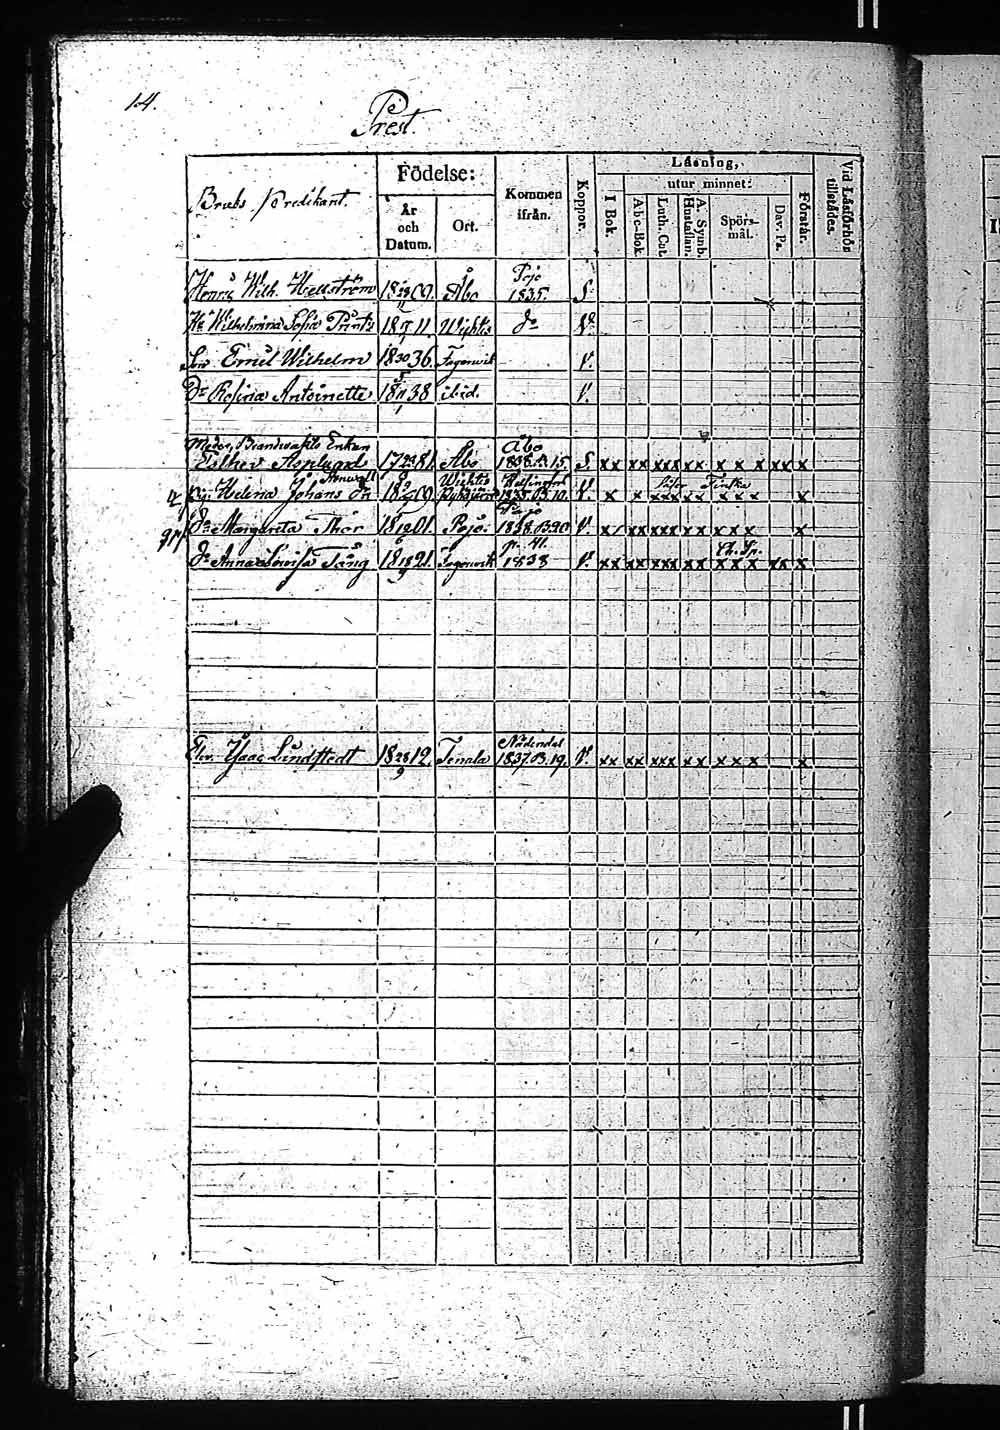 14.
Prest.
Bruks-Predikant.
Födelse:
År och Datum.
Ort.
Kommen ifrån.
Koppor.
Läsning,
I Bok.
utur minnet:
Abc-Bok
Luth. Cat.
A. Symb. Hustaflan.
Spörsmål.
Dav. Ps.
Förstår.
Vid Läsförhör tillstädes.
Henric Wilh. Hellström 18 09. Åbo Pojo 1835. S.
Wilhelmina Sofia Printz 18 11 Wichtis Do V.
Son Emil Wilhelm 18 30/5 36. Fagervik V.
Dr Rosina Antoinette 18 11/1 38 ibid. V.
Moder, Enkan
Esther Asplund 17 23 81. Åbo Åbo 1838. B. 15. S. xx xx xxx xx x x x xx x
Helena Johans dr 18 09 Wichtis Helsingfors 1835. B. 10. V. x x xxx xx x x x x
Do Margareta Thör 18 12/6 01. Pojo. Pojo 1838. B. 20 V. x/ xx xxx xx x x x x
Do Anna Lovisa Tång 18 18/9 21. Fagervik 1838 V. xx xx xxx xx x x x xx x
Elev. Isaac Lindstedt 18 28/9 12. Tenala Nådendal 1837. B. 19. V. xx xx xxx xx x x x x